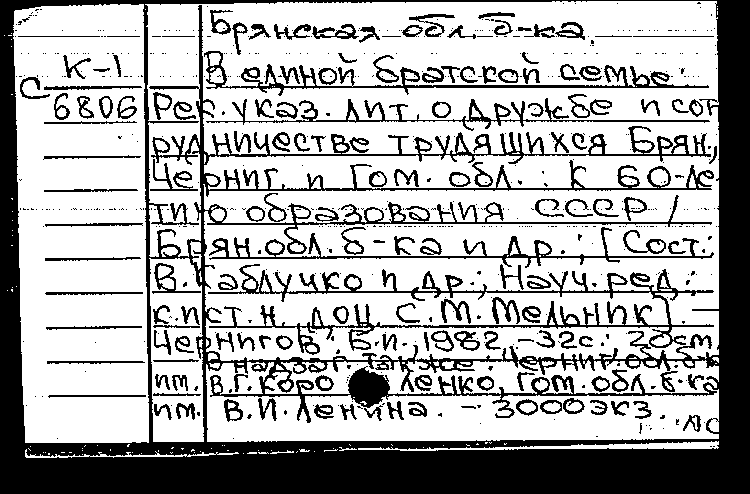 Брянская обл. б-ка.
К-1 В единой братской семье:
С
6806 Рек. указ. лит. о дружбе и сот
рудничестве трудящихся Брян.,
Черниг. и Гом. обл.: К 60-ле
тию образования СССР /
Брян. обл. б-ка и др.; [Сост.:
В. Каблучко и др.; Науч. ред.:
к. ист. н. доц. С. М. Мельник]. —
Чернигов: Б. и., 1982. — 32с.: 20см.
В надзаг. также: Черниг. обл. б-к
им. В. Г. Короленко, Гом. обл. б-ка
им. В. И. Ленина. — 3000экз.